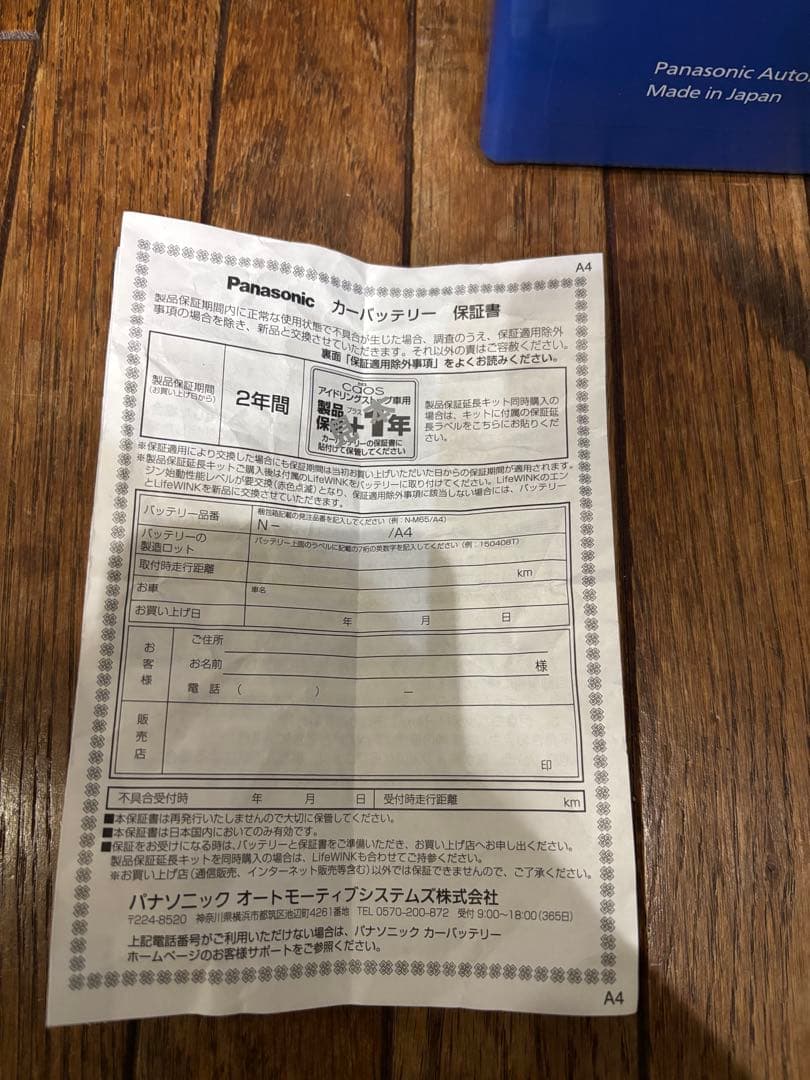 Panasonic Auto
Made in Japan
A4
Panasonic カーバッテリー 保証書
製品保証期間内に正常な使用状態で不具合が生じた場合、調査のうえ、保証適用除外
事項の場合を除き、新品と交換させていただきます。それ以外の責はご容赦ください。
裏面「保証適用除外事項」をよくお読みください。
製品保証期間
(お買い上げ日から)
2年間
caos
アイドリングストップ車用
製品 プラス
保証+1年
カーバッテリーの保証書に
貼付けて保管してください
製品保証延長キット同時購入の
場合は、キットに付属の保証延
長ラベルをこちらにお貼りくだ
さい。
※保証適用により交換した場合にも保証期間は当初お買い上げいただいた日からの保証期間が適用されます。
※製品保証延長キットご購入後は付属のLifeWINKをバッテリーに取り付けてください。LifeWINKのエン
ジン始動性能レベルが要交換(赤色点滅)となり、保証適用除外事項に該当しない場合には、バッテリー
とLifeWINKを新品に交換させていただきます。
バッテリー品番
梱包箱記載の発注品番を記入してください(例:N-M65/A4)
N− /A4
バッテリーの
製造ロット
バッテリー上面のラベルに記載の7桁の英数字を記入してください(例:150408T)
取付時走行距離 km
お車 車名
お買い上げ日 年 月 日
お客様
ご住所
お名前 様
電話 ( ) −
販売店
印
不具合受付時 年 月 日 受付時走行距離 km
■本保証書は再発行いたしませんので大切に保管してください。
■本保証書は日本国内においてのみ有効です。
■保証をお受けになる時は、バッテリーと保証書をご準備いただき、お買い上げ店へお申し出ください。
製品保証延長キットを同時購入の場合は、LifeWINKも合わせてご持参ください。
※お買い上げ店(通信販売、インターネット販売等含む)以外では保証できませんので、ご了承ください。
パナソニック オートモーティブシステムズ株式会社
〒224-8520 神奈川県横浜市都筑区池辺町4261番地 TEL 0570-200-872 受付 9:00~18:00(365日)
上記電話番号がご利用いただけない場合は、パナソニック カーバッテリー
ホームページのお客様サポートをご参照ください。
A4